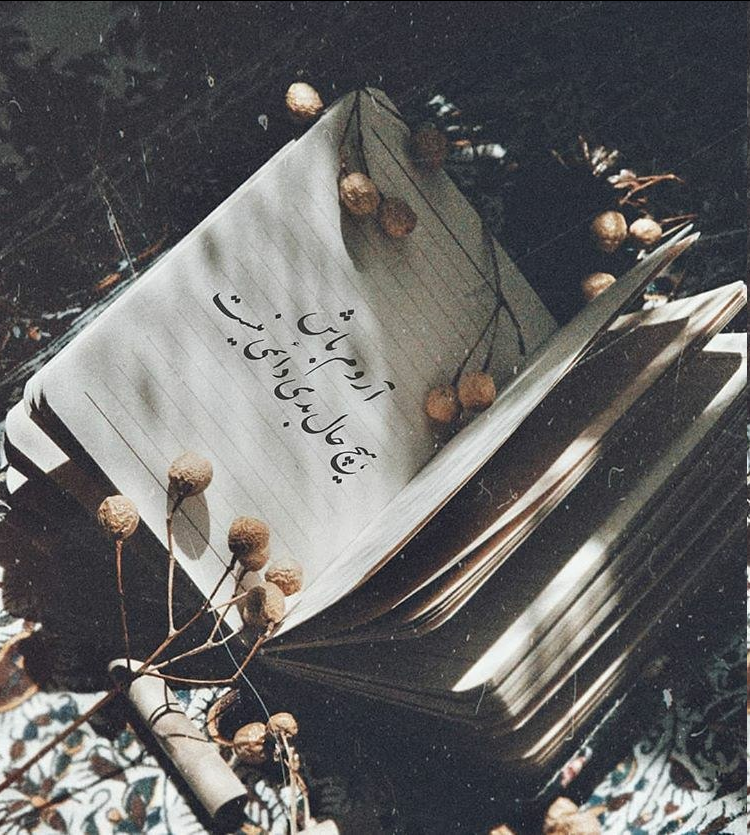 آروم باش
هیچ حال بدی دائمی نیست